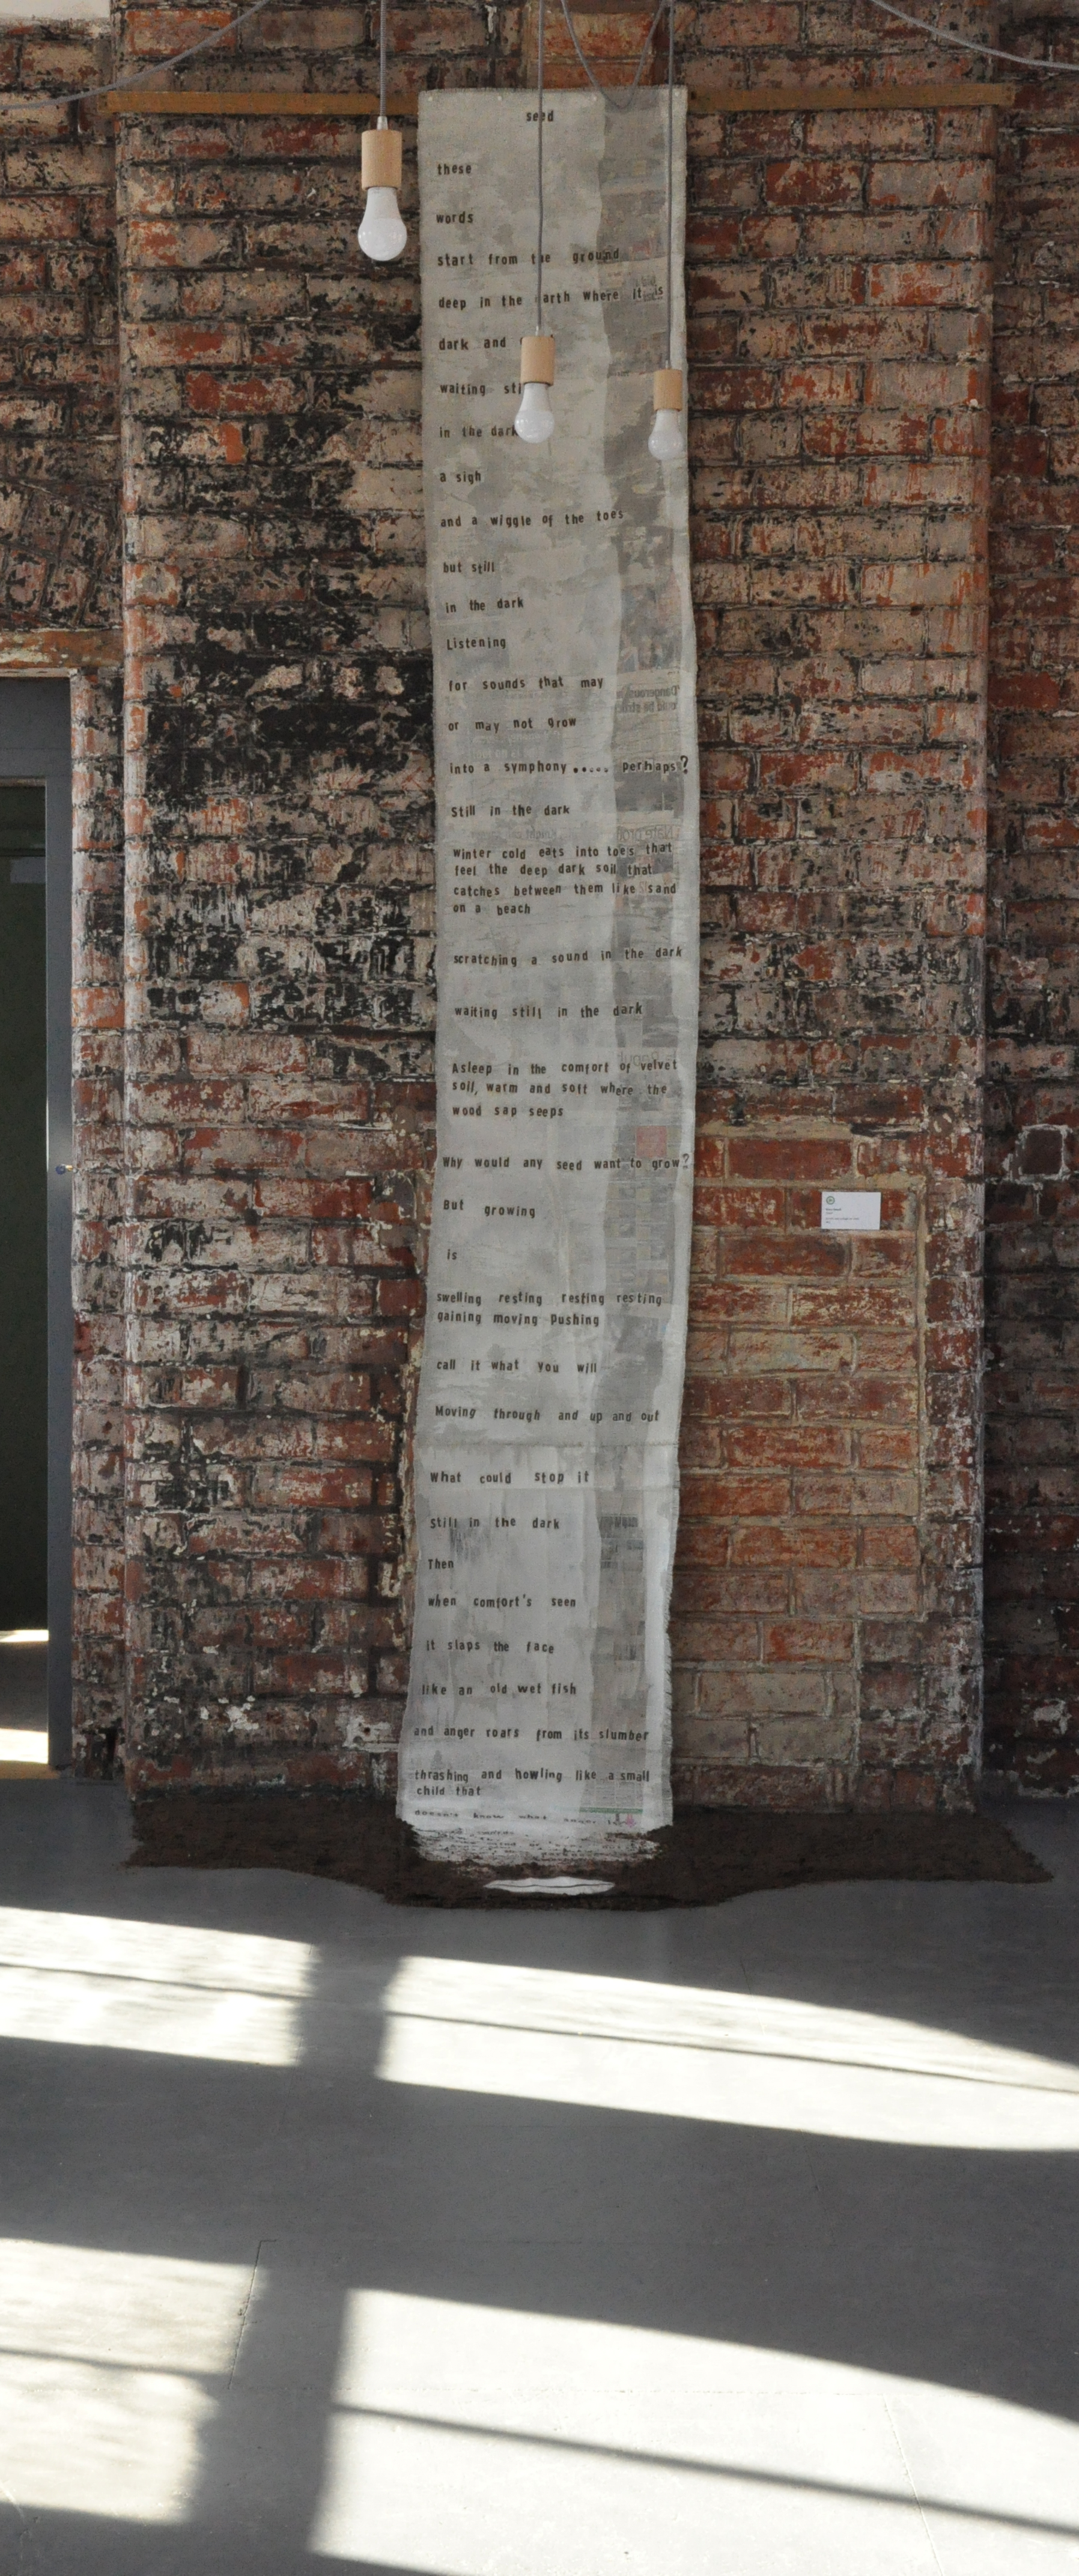 seed
these
words
start from the ground
deep in the earth where it is
dark and
waiting still
in the dark
a sigh
and a wiggle of the toes
but still
in the dark
Listening
for sounds that may
or may not grow
into a symphony ..... perhaps?
Still in the dark
winter cold eats into toes that
feel the deep dark soil that
catches between them like sand
on a beach
scratching a sound in the dark
waiting still in the dark
Asleep in the comfort of velvet
soil, warm and soft where the
wood sap seeps
Why would any seed want to grow?
But growing
is
swelling resting resting resting
gaining moving Pushing
call it what you will
Moving through and up and out
What could stop it
Still in the dark
Then
when comfort's seen
it slaps the face
like an old wet fish
and anger roars from its slumber
thrashing and howling like a small
child that
doesn't know what anger is